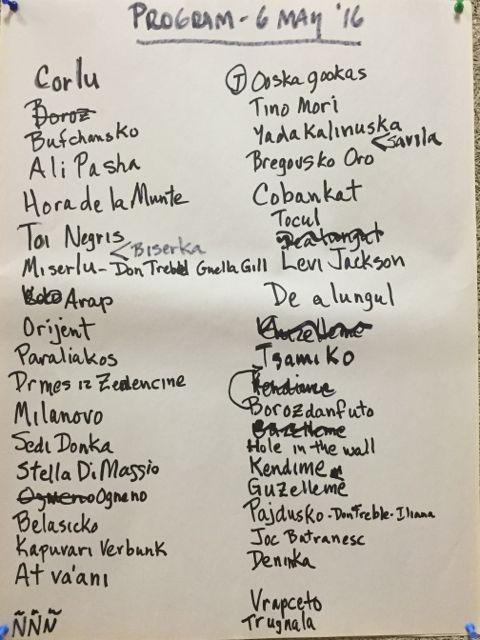 PROGRAM - 6 MAY '16
Corlu
Boroz
Bufchansko
Ali Pasha
Hora de la Munte
Toi Negris
Biserka
Miserlu - Don Trebl Gnella Gill
Arap
Orijent
Paraliakos
Drmes iz Zedencine
Milanovo
Sedi Donka
Stella DiMaggio
Ogneno Ogneno
Belasicko
Kapuvari Verbunk
At va'ani
ÑÑÑ
T Ooska gookas
Tino Mori
Yada Kalinuska
Savila
Bregovsko Oro
Cobankat
Tocul
Levi Jackson
De alungul
Tsamiko
Kendime
Borozdanfuto
Hole in the wall
Kendime
Guzelleme
Pajdusko - Don Treble - Iliana
Joc Batranesc
Deninka
Vrapceto
Trugnala